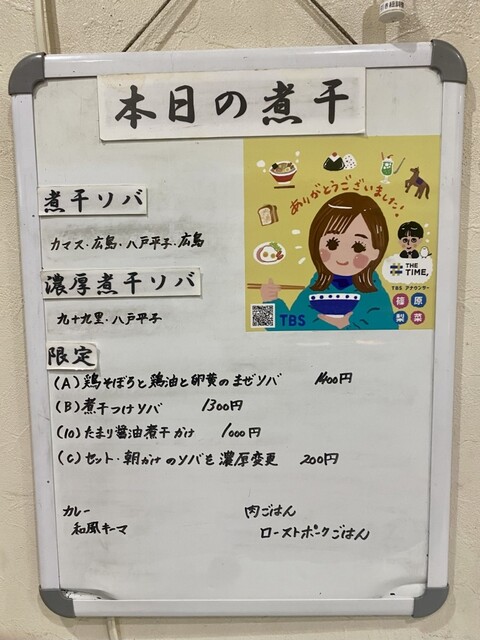 本日の煮干
煮干ソバ
カマス・広島・八戸平子・広島
濃厚煮干ソバ
九十九里・八戸平子
限定
(A) 鶏そぼろと鶏油と卵黄のまぜソバ 1400円
(B) 煮干つけソバ 1300円
(10) たまり醤油煮干かけ 1000円
(C) セット・朝かけのソバを濃厚変更 200円
カレー
和風キーマ
肉ごはん
ローストポークごはん
ありがとうございました!
THE TIME,
TBS アナウンサー
篠原
梨菜
TBS